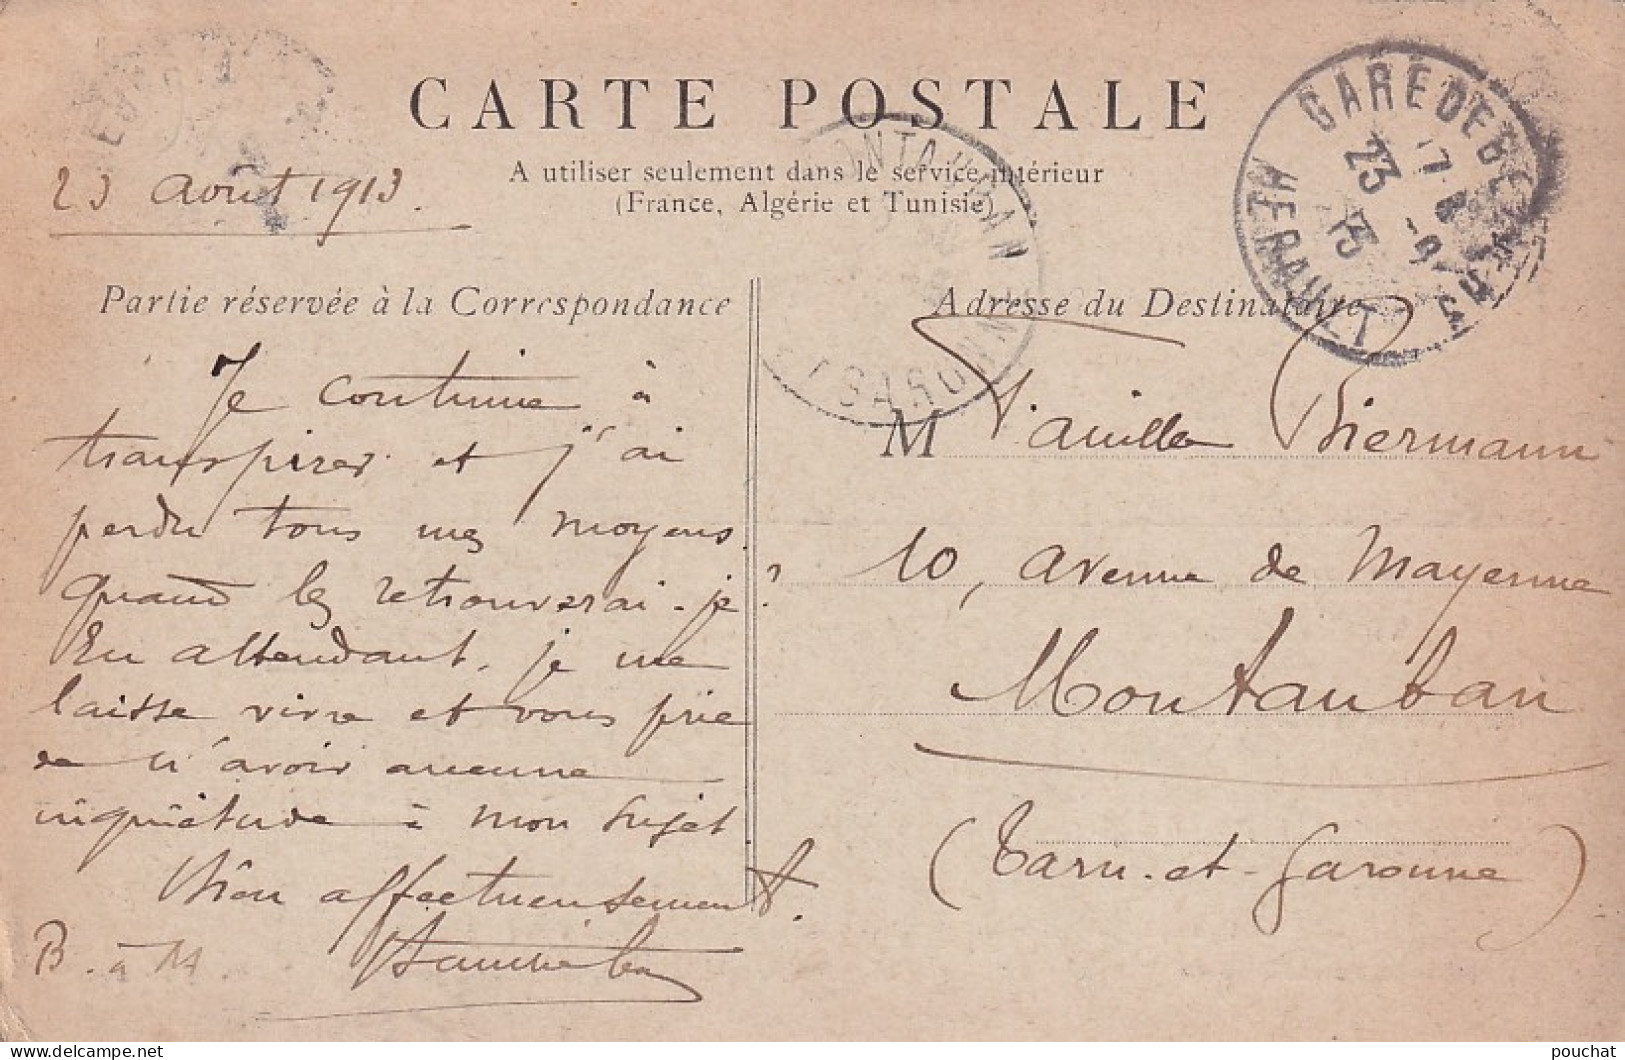 CARTE POSTALE
A utiliser seulement dans le service intérieur
(France, Algérie et Tunisie)
23 août 1913.
GARE DE BEZIERS
HERAULT
23 -8 13
MONTAUBAN
Partie réservée à la Correspondance
Je continue à
transpirer et j'ai
perdu tous mes moyens.
quand les retrouverai-je?
En attendant, je me
laisse vivre et vous prie
de n'avoir aucune
inquiétude à mon sujet
Bien affectueusement.
B. à M.
Adresse du Destinataire
M Famille Biermann
10, avenue de Mayenne
Montauban
(Tarn-et-Garonne)
pouchat
delcampe.net